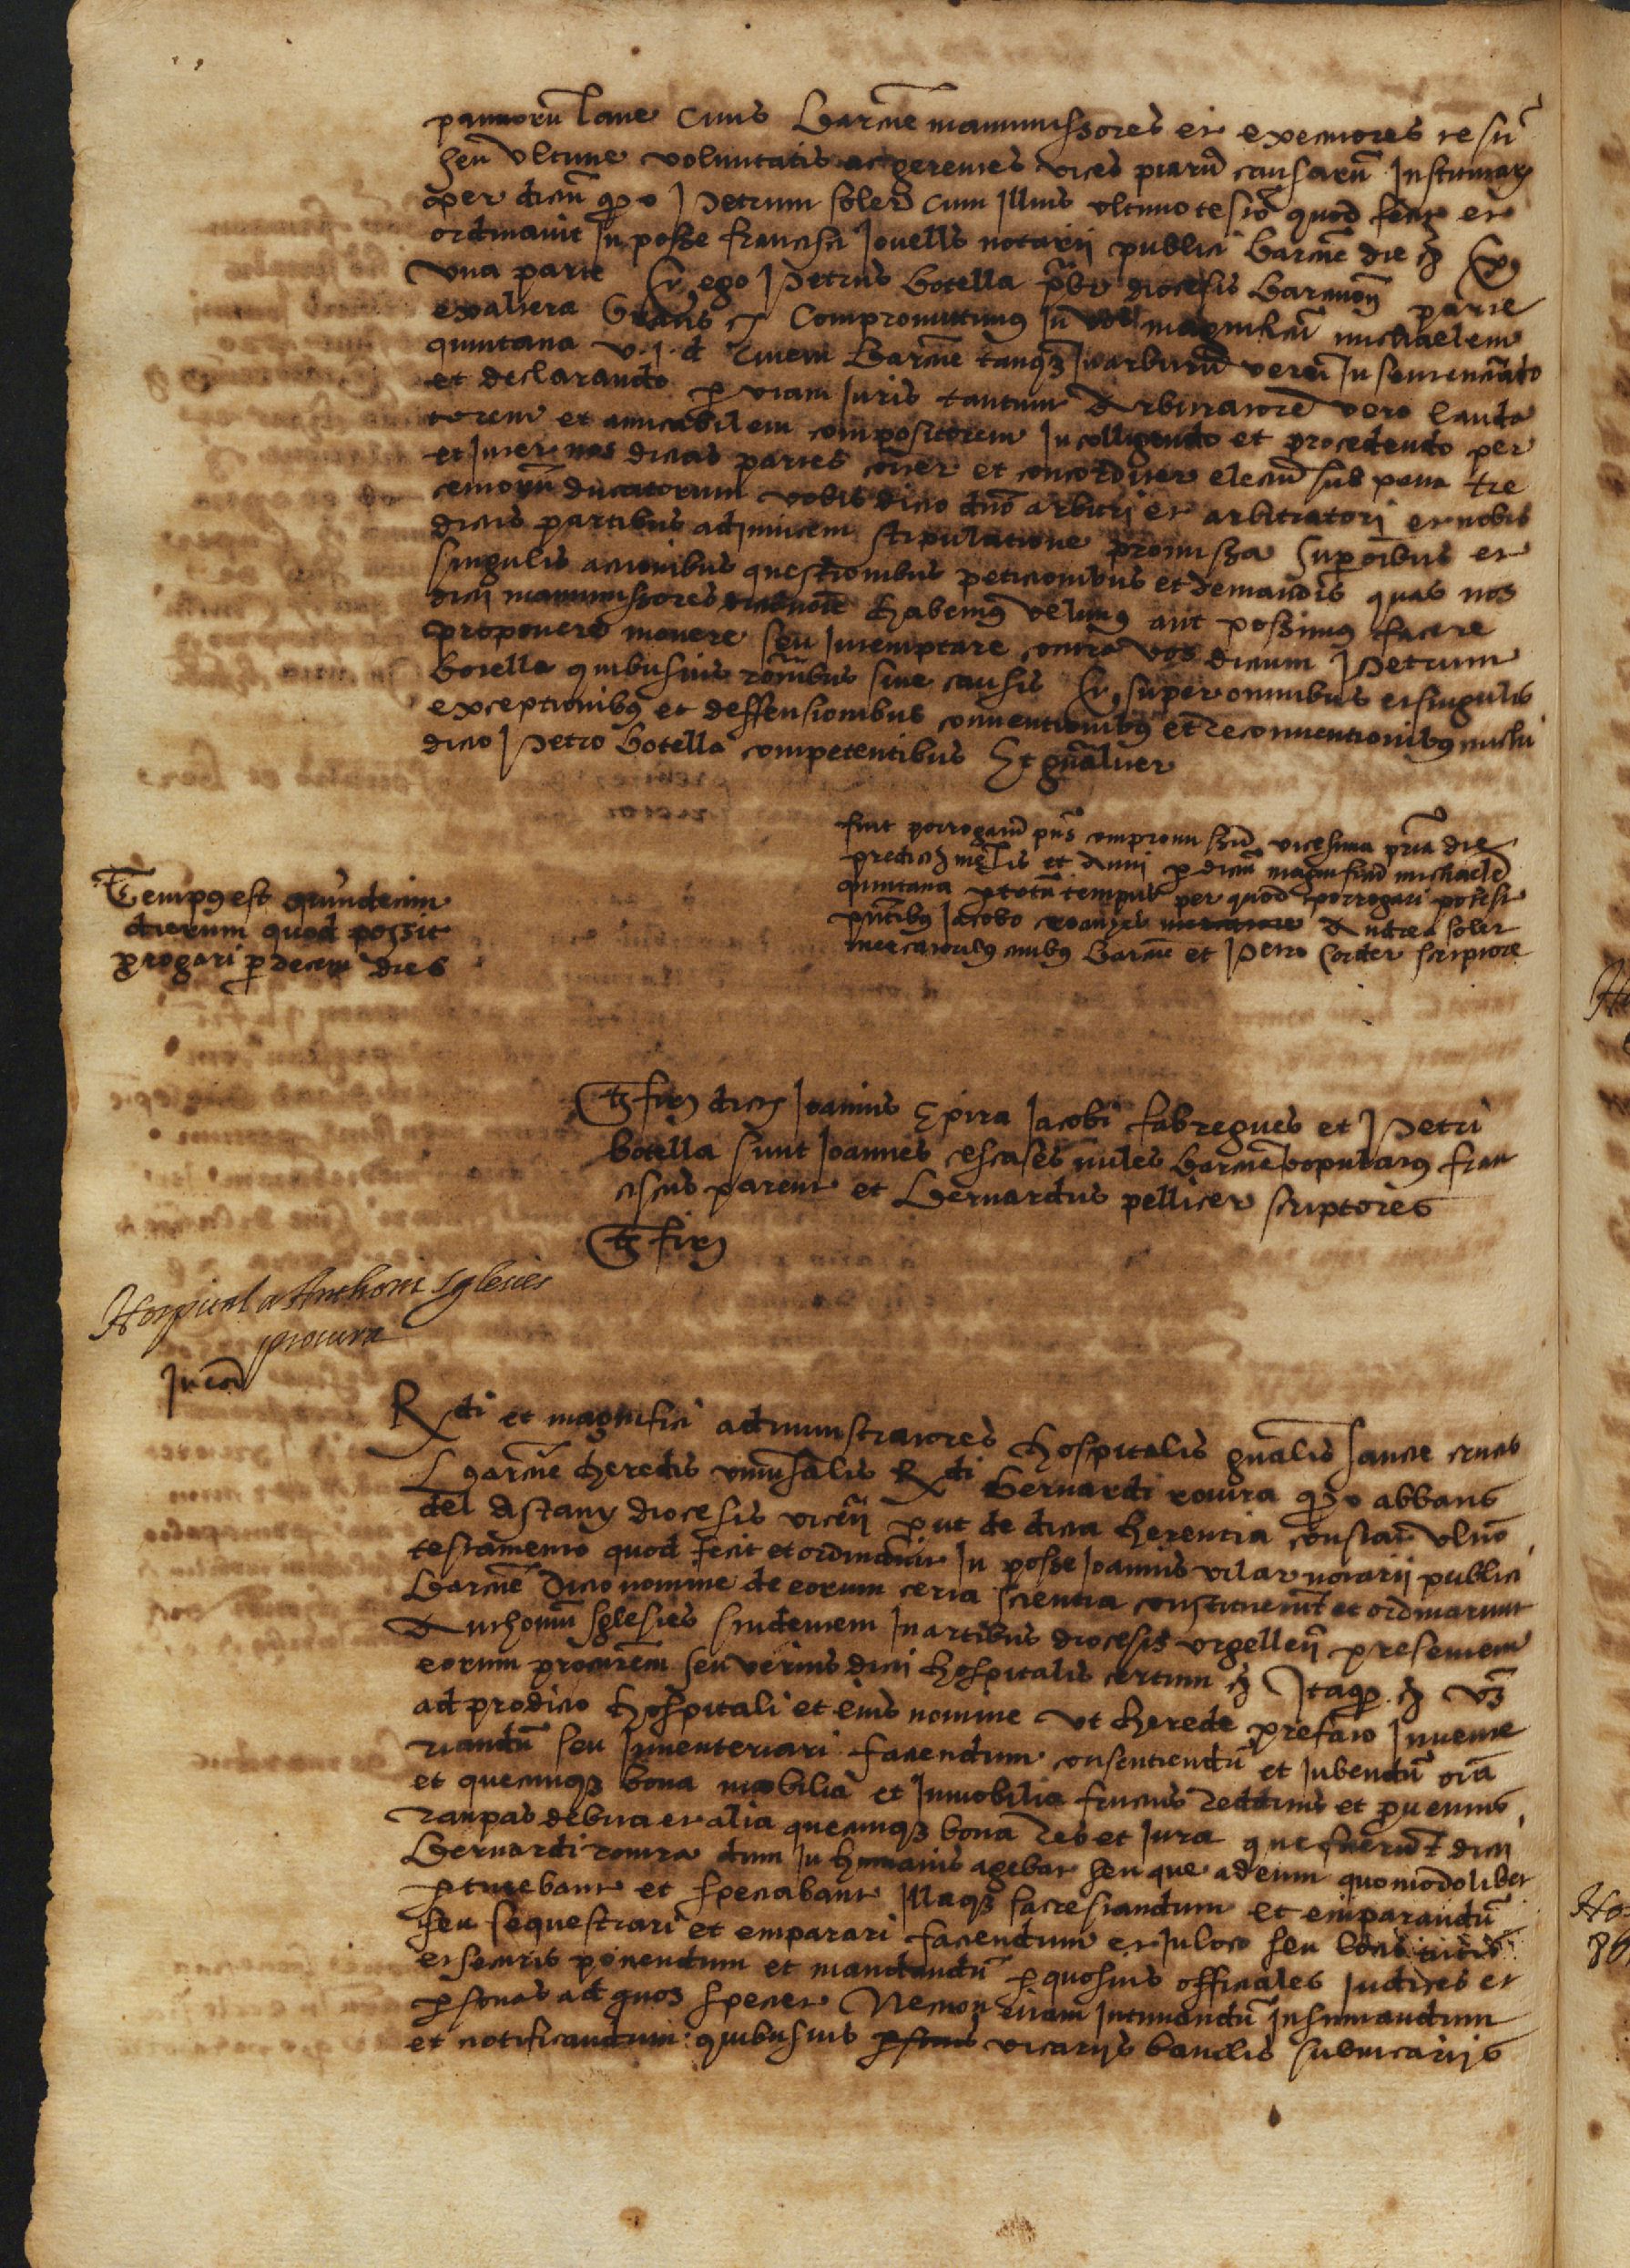 pannorũ lane civis Barcñe manumissores et executores testi
seu ultime voluntatis ac gerentes vices piarũ causarũ Instituta℞
per dictũ qº Petrum soler cum illius ultimo testio quod fecit et
ordinavit In posse francisci Jovells notarij publici Barcñe die &c ex
una parte Et ego Petrus Botella pbr diocesis Barcnoñ parte
ex altera Gratis &c Compromittimus In vos magnificũ michaelem
quintana u. j. d. civem Barcñe tanqʒ In arbitrũ verũ In sentenciãdo
et declarando p viam Juris tantum Arbitratorẽ vero lauda
torem et amicabilem compositorem In colligendo et procedendo per
et Inter nos dictas partes coiter et concorditer electũ sub pena tre
centorũ ducatorum vobis dicto dño arbitri et arbitratori et nobis
dictis partibus adinvicem stipulatione promissa Super oibus et
singulis actionibus questionibus peticionibus et demandis quas nos
dicti manumissores dicto noie habemus velimus aut possimus facere
proponere movere seu Intemptare contra vos dictum Petrum
Botella quibusvis rõnibus sive causis Et super omnibus et singulis
exceptionibus et deffensionibus conventionibus et reconventionibus michi
dicto Petro Botella competentibus Et gñaliter
fuit porrogatũ pñs compromissũ vicesima pria die
predictʒ meñsis et Anni p dictũ magnificũ michaelẽ
quintana p totũ tempus per quod porrogari potest
pñtibus Jacobo mercatore Andrea soler
mercatoribus civibus Barcñe et Petro Corder scriptore
Tempus est quindecim
dierum quod possit
progari p decem dies
Tʒ firʒ dictʒ Joannis Spira Jacobi fabregues et Petri
Botella sunt Joannes cescases miles Barcñe populatus fran
ciscus parent et Bernardus pellicer scriptores
Tʒ firʒ
Hospital a Anthoni Iglesies
procura
In eod
Rdi et magnifici administratores hospitalis gñalis sancte crucis
Barcñe heredis universalis Rdi Bernardi rovira qº abbatis
del Astany diocesis viceñ put de dicta herentia constat ultio
testamento quod fecit et ordinavit In posse Joannis vilar notarij publici
Barcñe Dicto nomine de eorum certa scientia constituerũt et ordinarunt
Anthoniũ Iglesies studentem In artibus diocesis urgelleñ presentem
eorum procurem seu verius dicti hospitalis certum &c Ita qº &c vʒ
ad pro dicto hospitali et eius nomine ut herede prefato Invente
riandũ seu Inventeriari faciendum consentiendũ et Jubendũ oia
et quecumqʒ bona mobilia et Immobilia fructus redditus et pventus
raupas debita et alia quecumqʒ bona res et Jura que fuerunt dicti
Bernardi rovira dum In humanis agebat seu que ad eum quomodolibet
ptinebant et spectabant Illaqʒ sacrestandum et emparandũ
seu sequestrari et emparari faciendum et In loco seu locis tutis
et securis ponendum et mandandũ p quosvis officiales Judices et
psonas ad quos spectet Necnon etiam Intimandũ Insinuandum
et notificandum quibusvis vicariis baiulis subvicariis